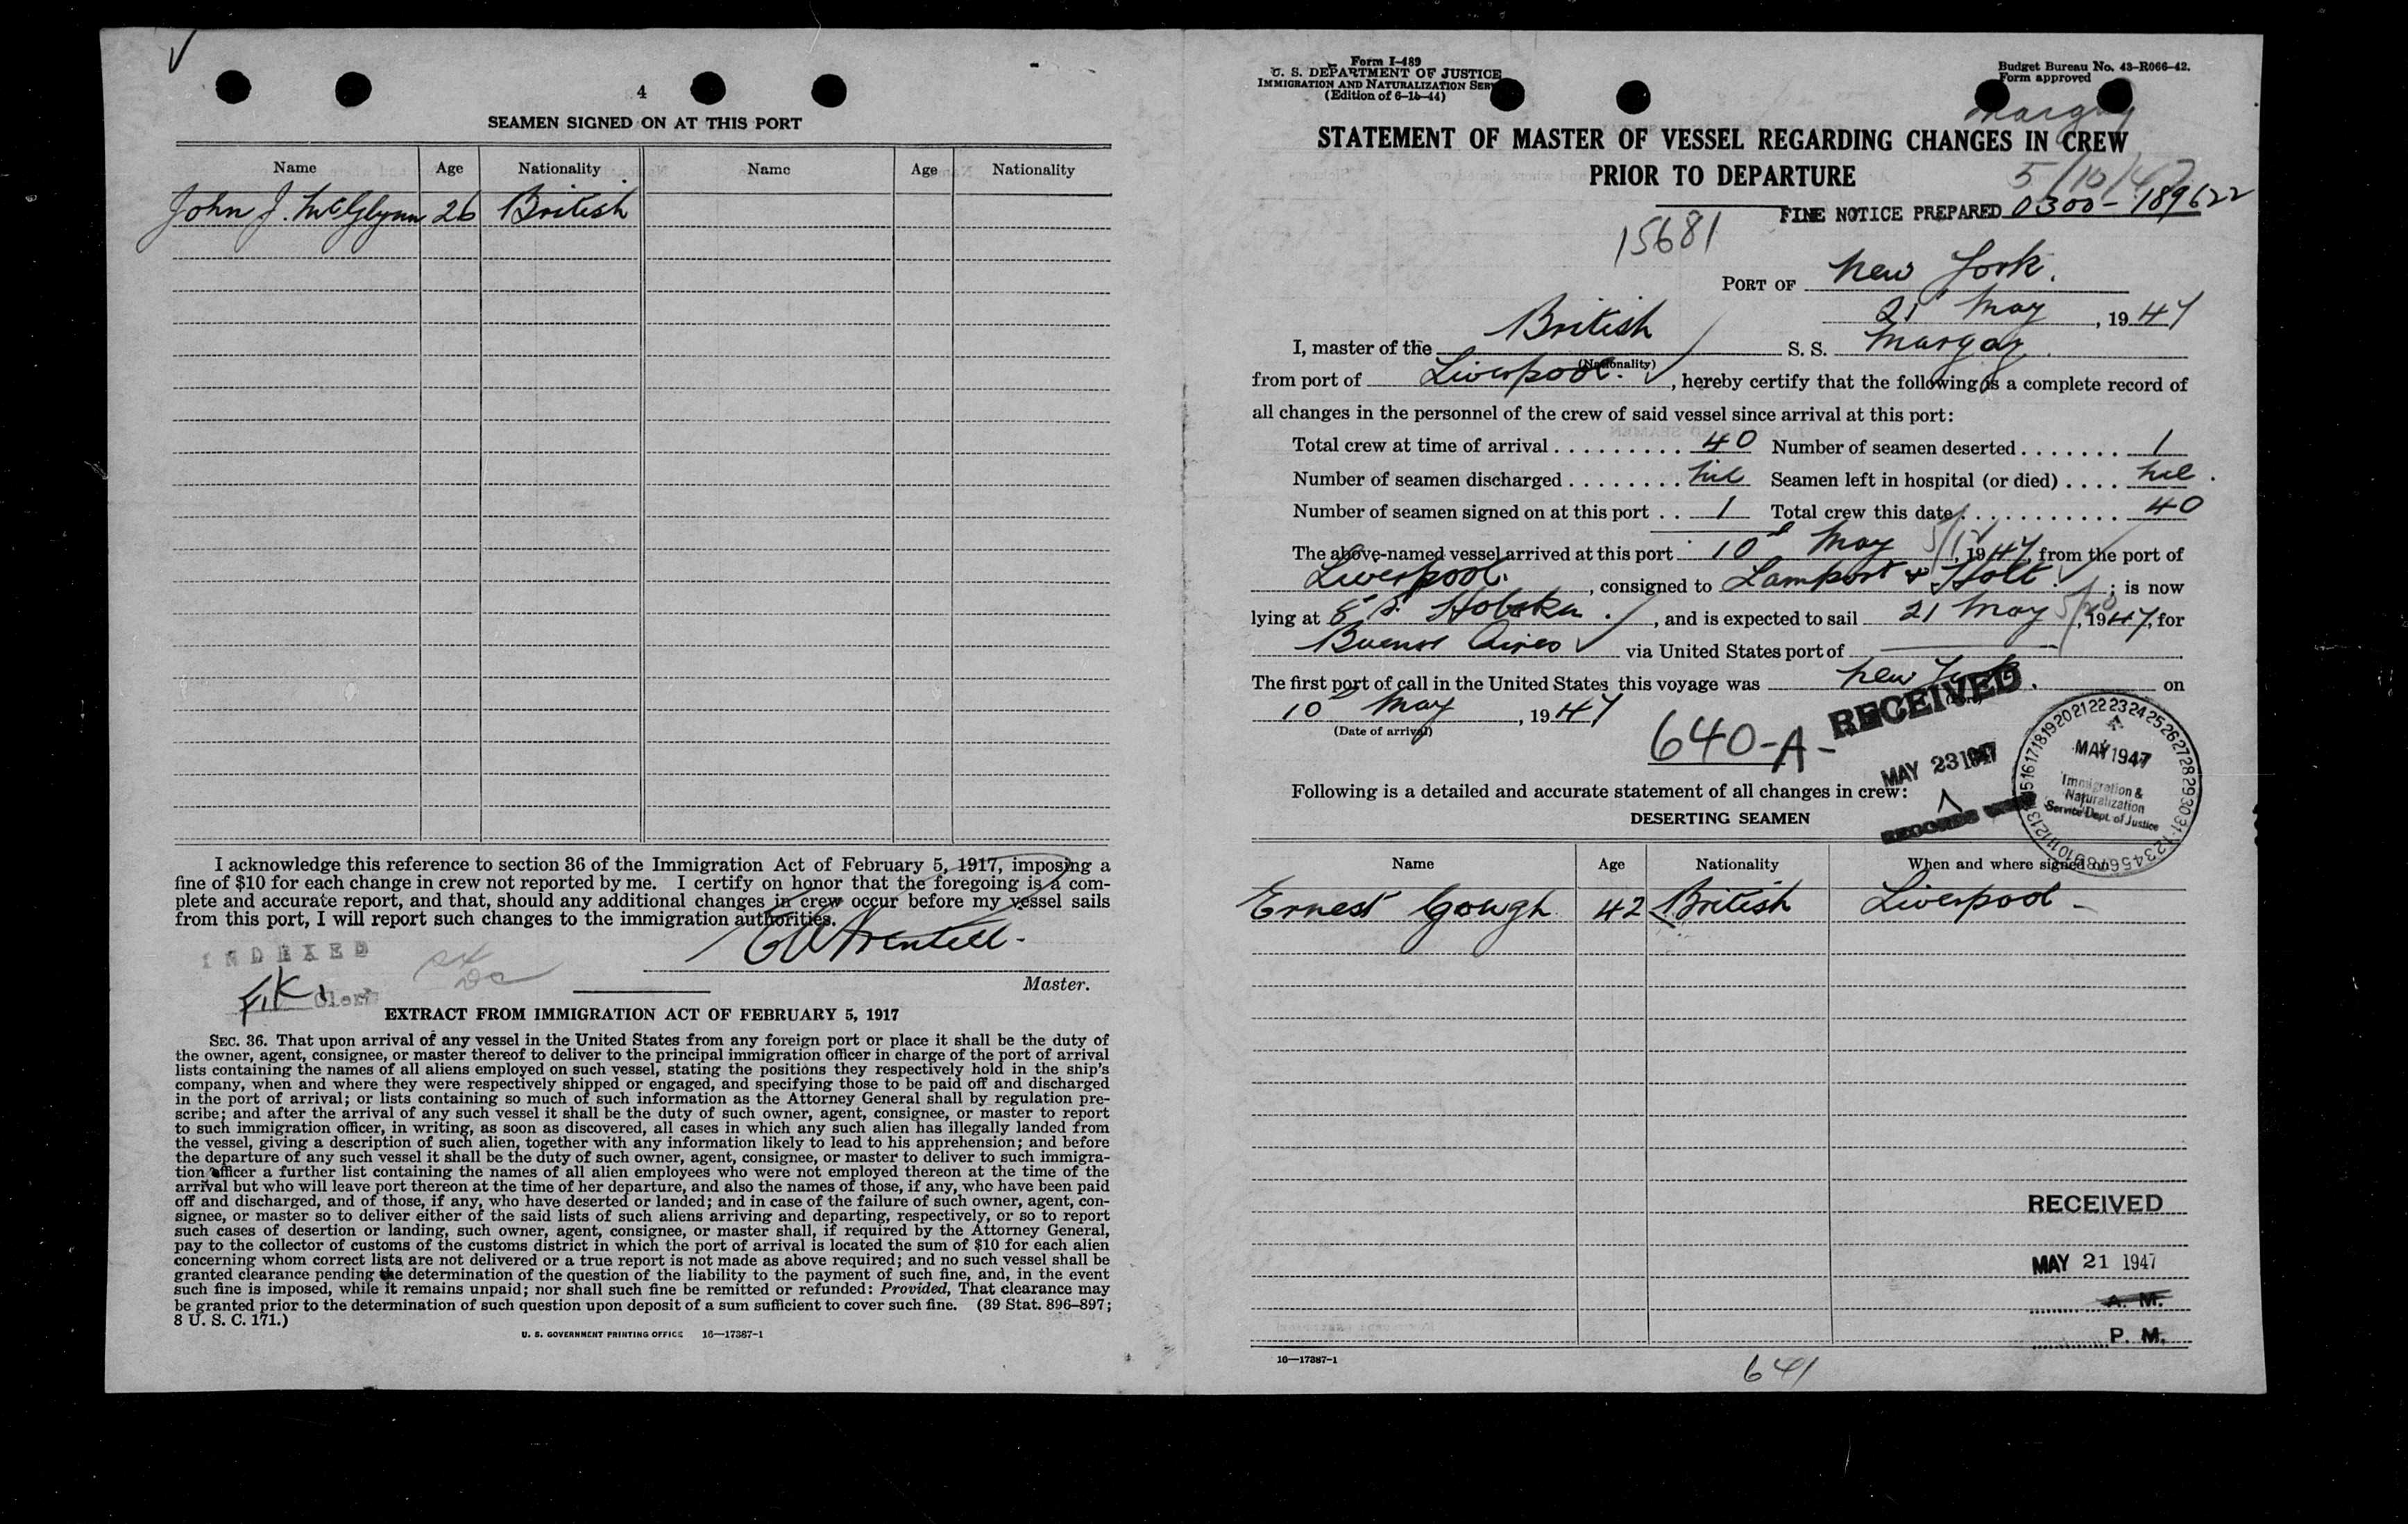 4
SEAMEN SIGNED ON AT THIS PORT
Name Age Nationality Name Age Nationality
John J. McGlynn 26 British
I acknowledge this reference to section 36 of the Immigration Act of February 5, 1917, imposing a
fine of $10 for each change in crew not reported by me. I certify on honor that the foregoing is a com-
plete and accurate report, and that, should any additional changes in crew occur before my vessel sails
from this port, I will report such changes to the immigration authorities.
Master.
INDEXED
F.K. Clerk
EXTRACT FROM IMMIGRATION ACT OF FEBRUARY 5, 1917
SEC. 36. That upon arrival of any vessel in the United States from any foreign port or place it shall be the duty of
the owner, agent, consignee, or master thereof to deliver to the principal immigration officer in charge of the port of arrival
lists containing the names of all aliens employed on such vessel, stating the positions they respectively hold in the ship's
company, when and where they were respectively shipped or engaged, and specifying those to be paid off and discharged
in the port of arrival; or lists containing so much of such information as the Attorney General shall by regulation pre-
scribe; and after the arrival of any such vessel it shall be the duty of such owner, agent, consignee, or master to report
to such immigration officer, in writing, as soon as discovered, all cases in which any such alien has illegally landed from
the vessel, giving a description of such alien, together with any information likely to lead to his apprehension; and before
the departure of any such vessel it shall be the duty of such owner, agent, consignee, or master to deliver to such immigra-
tion officer a further list containing the names of all alien employees who were not employed thereon at the time of the
arrival but who will leave port thereon at the time of her departure, and also the names of those, if any, who have been paid
off and discharged, and of those, if any, who have deserted or landed; and in case of the failure of such owner, agent, con-
signee, or master so to deliver either of the said lists of such aliens arriving and departing, respectively, or so to report
such cases of desertion or landing, such owner, agent, consignee, or master shall, if required by the Attorney General,
pay to the collector of customs of the customs district in which the port of arrival is located the sum of $10 for each alien
concerning whom correct lists are not delivered or a true report is not made as above required; and no such vessel shall be
granted clearance pending the determination of the question of the liability to the payment of such fine, and, in the event
such fine is imposed, while it remains unpaid; nor shall such fine be remitted or refunded: Provided, That clearance may
be granted prior to the determination of such question upon deposit of a sum sufficient to cover such fine. (39 Stat. 896–897;
8 U. S. C. 171.)
U. S. GOVERNMENT PRINTING OFFICE 16—17387-1
Form I-489
U. S. DEPARTMENT OF JUSTICE
IMMIGRATION AND NATURALIZATION SER
(Edition of 6-15-44)
Budget Bureau No. 43-R066-42.
Form approved
Margay
STATEMENT OF MASTER OF VESSEL REGARDING CHANGES IN CREW
PRIOR TO DEPARTURE
5/10/47
FINE NOTICE PREPARED 0300-189622
15681
PORT OF New York.
21 May, 1947
I, master of the British S. S. Margay.
(Nationality)
from port of Liverpool., hereby certify that the following is a complete record of
all changes in the personnel of the crew of said vessel since arrival at this port:
Total crew at time of arrival 40 Number of seamen deserted 1
Number of seamen discharged Nil Seamen left in hospital (or died) Nil.
Number of seamen signed on at this port 1 Total crew this date 40
The above-named vessel arrived at this port 10 May, 1947, from the port of
Liverpool., consigned to Lamport & Holt.; is now
lying at Hoboken., and is expected to sail 21 May 5/20, 1947, for
Buenos Aires via United States port of —
The first port of call in the United States this voyage was New York. on
10 May, 1947
(Date of arrival)
640-A-
RECEIVED
MAY 23 1947
MAY 1947
Immigration &
Naturalization
Service Dept. of Justice
Following is a detailed and accurate statement of all changes in crew:
DESERTING SEAMEN
Name Age Nationality When and where signed on
Ernest Gough 42 British Liverpool -
RECEIVED
MAY 21 1947
A. M.
P. M.
16—17387-1
641